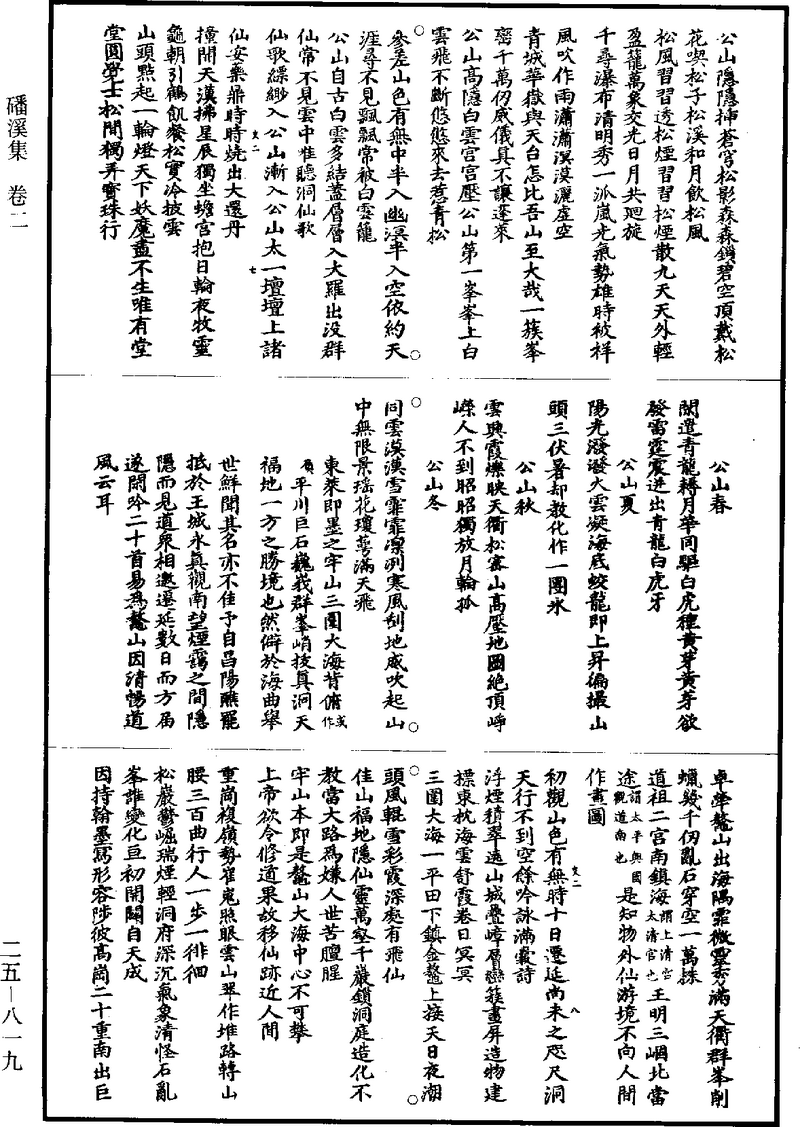 磻溪集　卷二
公山隱隱揷蒼穹松影森森鎖碧空頂戴松
花喫松子松溪和月飲松風
松風習習透松煙習習松煙散九天天外輕
盈籠萬象交光日月共迴旋
千尋瀑布清明秀一派嵐光氣勢雄時被祥
風吹作雨瀟瀟溟漠灑虛空
青城華嶽與天台怎比吾山至大哉一簇峯
巒千萬仞威儀具不讓蓬萊
公山高隱白雲宮宮壓公山第一峯峯上白
雲飛不斷悠悠來去惹青松
參差山色有無中半入幽溟半入空依約天
涯尋不見飄飄常被白雲籠
公山自古白雲多結蓋層層入大羅出沒群
仙常不見雲中惟聽洞仙歌
仙歌縹緲入公山漸入公山太一壇壇上諸
仙安樂鼎時時燒出大還丹
撞開天漢拂星辰獨坐蟾宮抱日輪夜牧靈
龜朝引鶴飢飡松實冷披雲
山頭點起一輪燈天下妖魔盡不生唯有堂
堂圓覺士松間獨弄寶珠行
文二
七
公山春
閑遣青龍轉月華同驅白虎種黃芽黃芽欲
發雷霆震迸出青龍白虎牙
公山夏
陽光潑潑火雲凝海底蛟龍即上昇偏撮山
頭三伏暑却教化作一團氷
公山秋
雲興霞爍映天衢松寨山高壓地圖絶頂崢
嶸人不到昭昭獨放月輪孤
公山冬
同雲漠漠雪霏霏凛冽寒風刮地威吹起山
中無限景瑤花瓊蕚滿天飛
東萊即墨之牢山三圍大海背俯或作
負平川巨石巍峩群峯峭拔真洞天
福地一方之勝境也然僻於海曲舉
世鮮聞其名亦不佳予自昌陽醮罷
抵於王城永真觀南望煙靄之間隱
隱而見道衆相邀遷延數日而方届
遂閑吟二十首易爲鼇山因清暢道
風云耳
卓犖鼇山出海隅霏微靈秀滿天衢群峯削
蠟幾千仞亂石穿空一萬株
道祖二宮南鎮海謂上清宮太清宮也王明三崓北當
途謂太平興國觀道南也是知物外仙游境不向人間
作畫圖
初觀山色有無時十日遷延尚未之咫尺洞
天行不到空餘吟詠滿囊詩
文二
八
浮煙積翠遶山城疊嶂層巒簇畫屏造物建
標東枕海雲舒霞卷日冥冥
三圍大海一平田下鎮金鼇上接天日夜潮
頭風輥雪彩霞深處有飛仙
佳山福地隱仙靈萬壑千巖鎖洞庭造化不
教當大路爲嫌人世苦膻腥
牢山本即是鼇山大海中心不可攀
上帝欲令修道果故移仙跡近人間
重崗複嶺勢崔嵬照眼雲山翠作堆路轉山
腰三百曲行人一步一徘徊
松巖欝崛瑞煙輕洞府深沉氣象清怪石亂
峯誰變化亘初開闢自天成
因持翰墨寫形容陟彼高崗二十重南出巨
二五—八一九